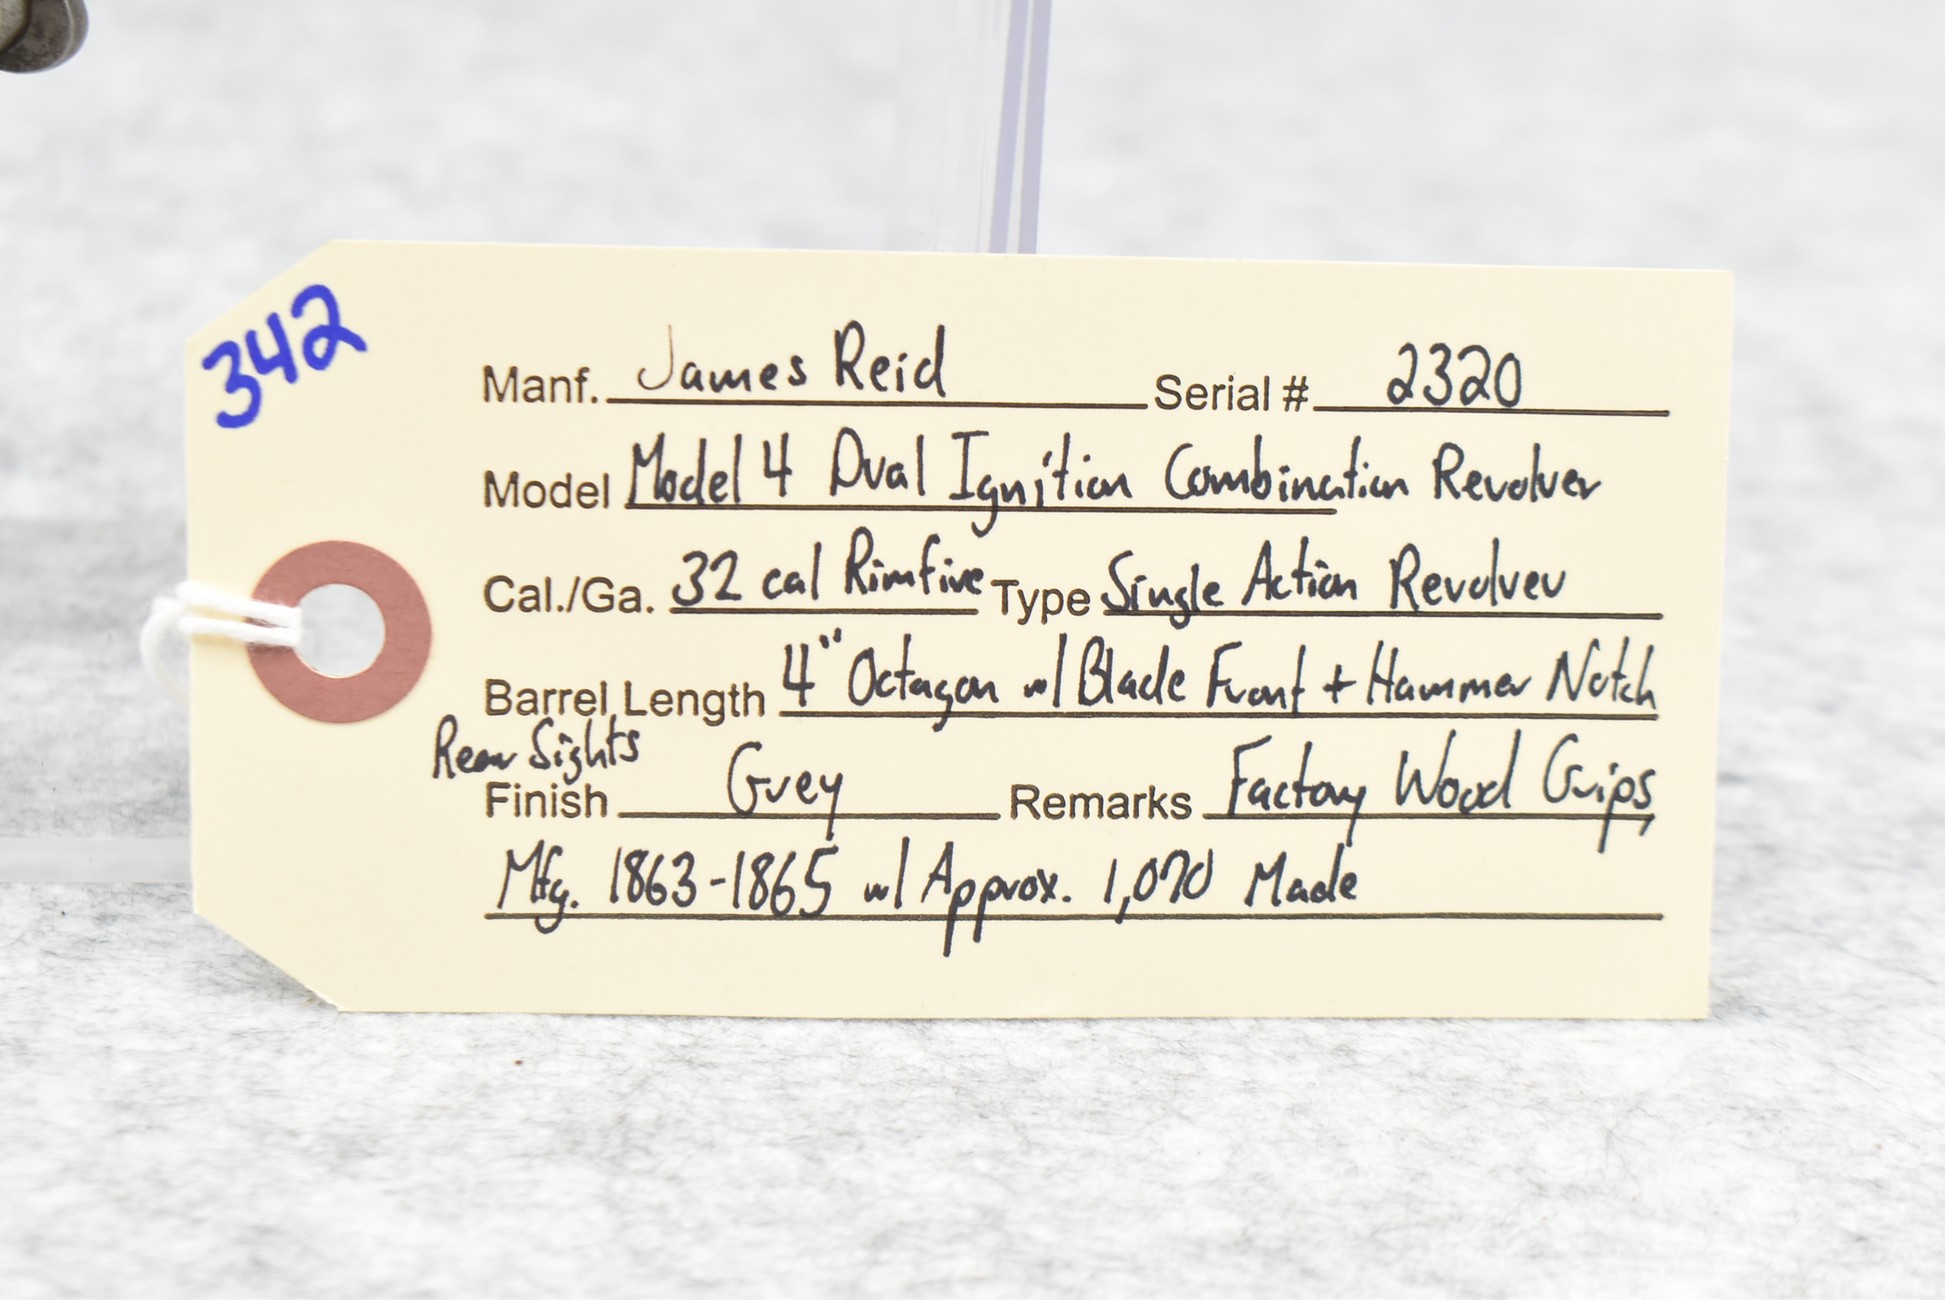 342
Manf. James Reid Serial # 2320
Model Model 4 Dual Ignition Combination Revolver
Cal./Ga. 32 cal Rimfire Type Single Action Revolver
Barrel Length 4" Octagon w/ Blade Front + Hammer Notch
Rear Sights
Finish Grey Remarks Factory Wood Grips,
Mfg. 1863-1865 w/ Approx. 1,070 Made